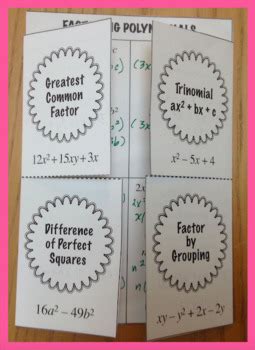 Greatest
Common
Factor
12x² + 15xy + 3x
Trinomial
ax² + bx + c
x² − 5x + 4
Difference
of Perfect
Squares
16a² − 49b²
Factor
by
Grouping
xy − y² + 2x − 2y